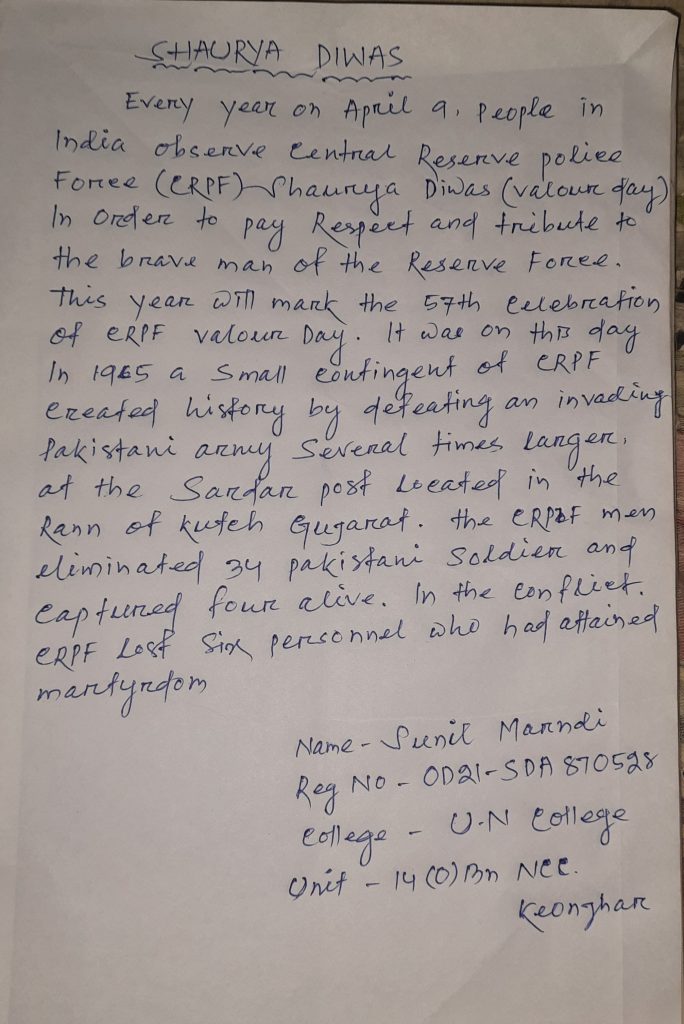 SHAURYA DIWAS
Every year on April 9, people in
India observe Central Reserve police
Force (CRPF) Shaurya Diwas (valour day)
In order to pay Respect and tribute to
the brave man of the Reserve Force.
This year will mark the 57th celebration
of CRPF valour Day. It was on this day
In 1965 a Small contingent of CRPF
created history by defeating an invading
Pakistani army Several times larger,
at the Sardar post located in the
Rann of kutch Gujarat. the CRPF men
eliminated 34 pakistani Soldier and
captured four alive. In the conflict.
CRPF Lost Six personnel who had attained
martyrdom
Name - Sunil Marndi
Reg No - OD21-SDA 870528
College - U.N College
Unit - 14 (O) Bn NCC.
Keonjhar